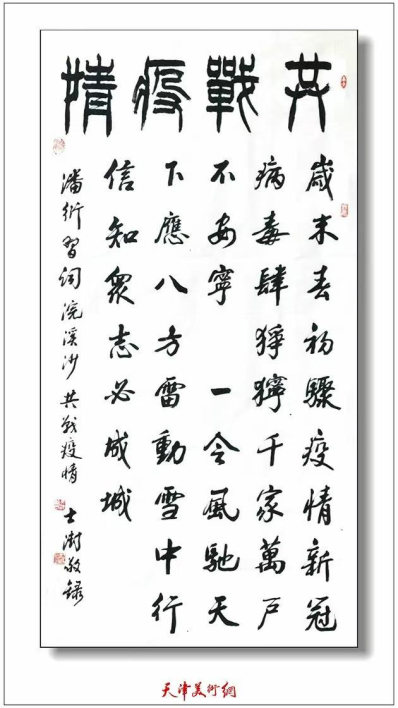 共戰疫情
歲末春初驟疫情新冠
病毒肆猙獰千家萬戶
不安寧 一令風馳天
下應八方雷動雪中行
信知衆志必成城
潘衍習詞浣溪沙 共战疫情 士澍敬録
天津美術網